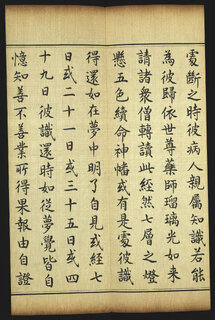 處斷之時彼病人親屬知識若能
為彼歸依世尊藥師瑠璃光如来
請諸衆僧轉讀此經然七層之燈
懸五色續命神幡或有是處彼識
得還如在夢中明了自見或經七
日或二十一日或三十五日或四
十九日彼識還時如從夢覺皆自
憶知善不善業所得果報由自證